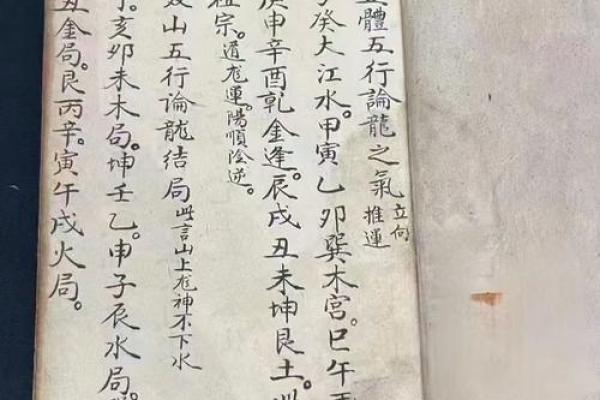 體五行論龍之氣
立向
推運
癸大江水。甲寅乙卯巽木宮。巳午
庚申辛酉乾金逢。辰戌丑未坤艮土。
祖宗。道龙運。陽順陰逆。
双山五行論龍結局 此言山上龙神不下水
丁。亥卯未木局。坤壬乙。申子辰水局。
丑金局。艮丙辛。寅午戌火局。